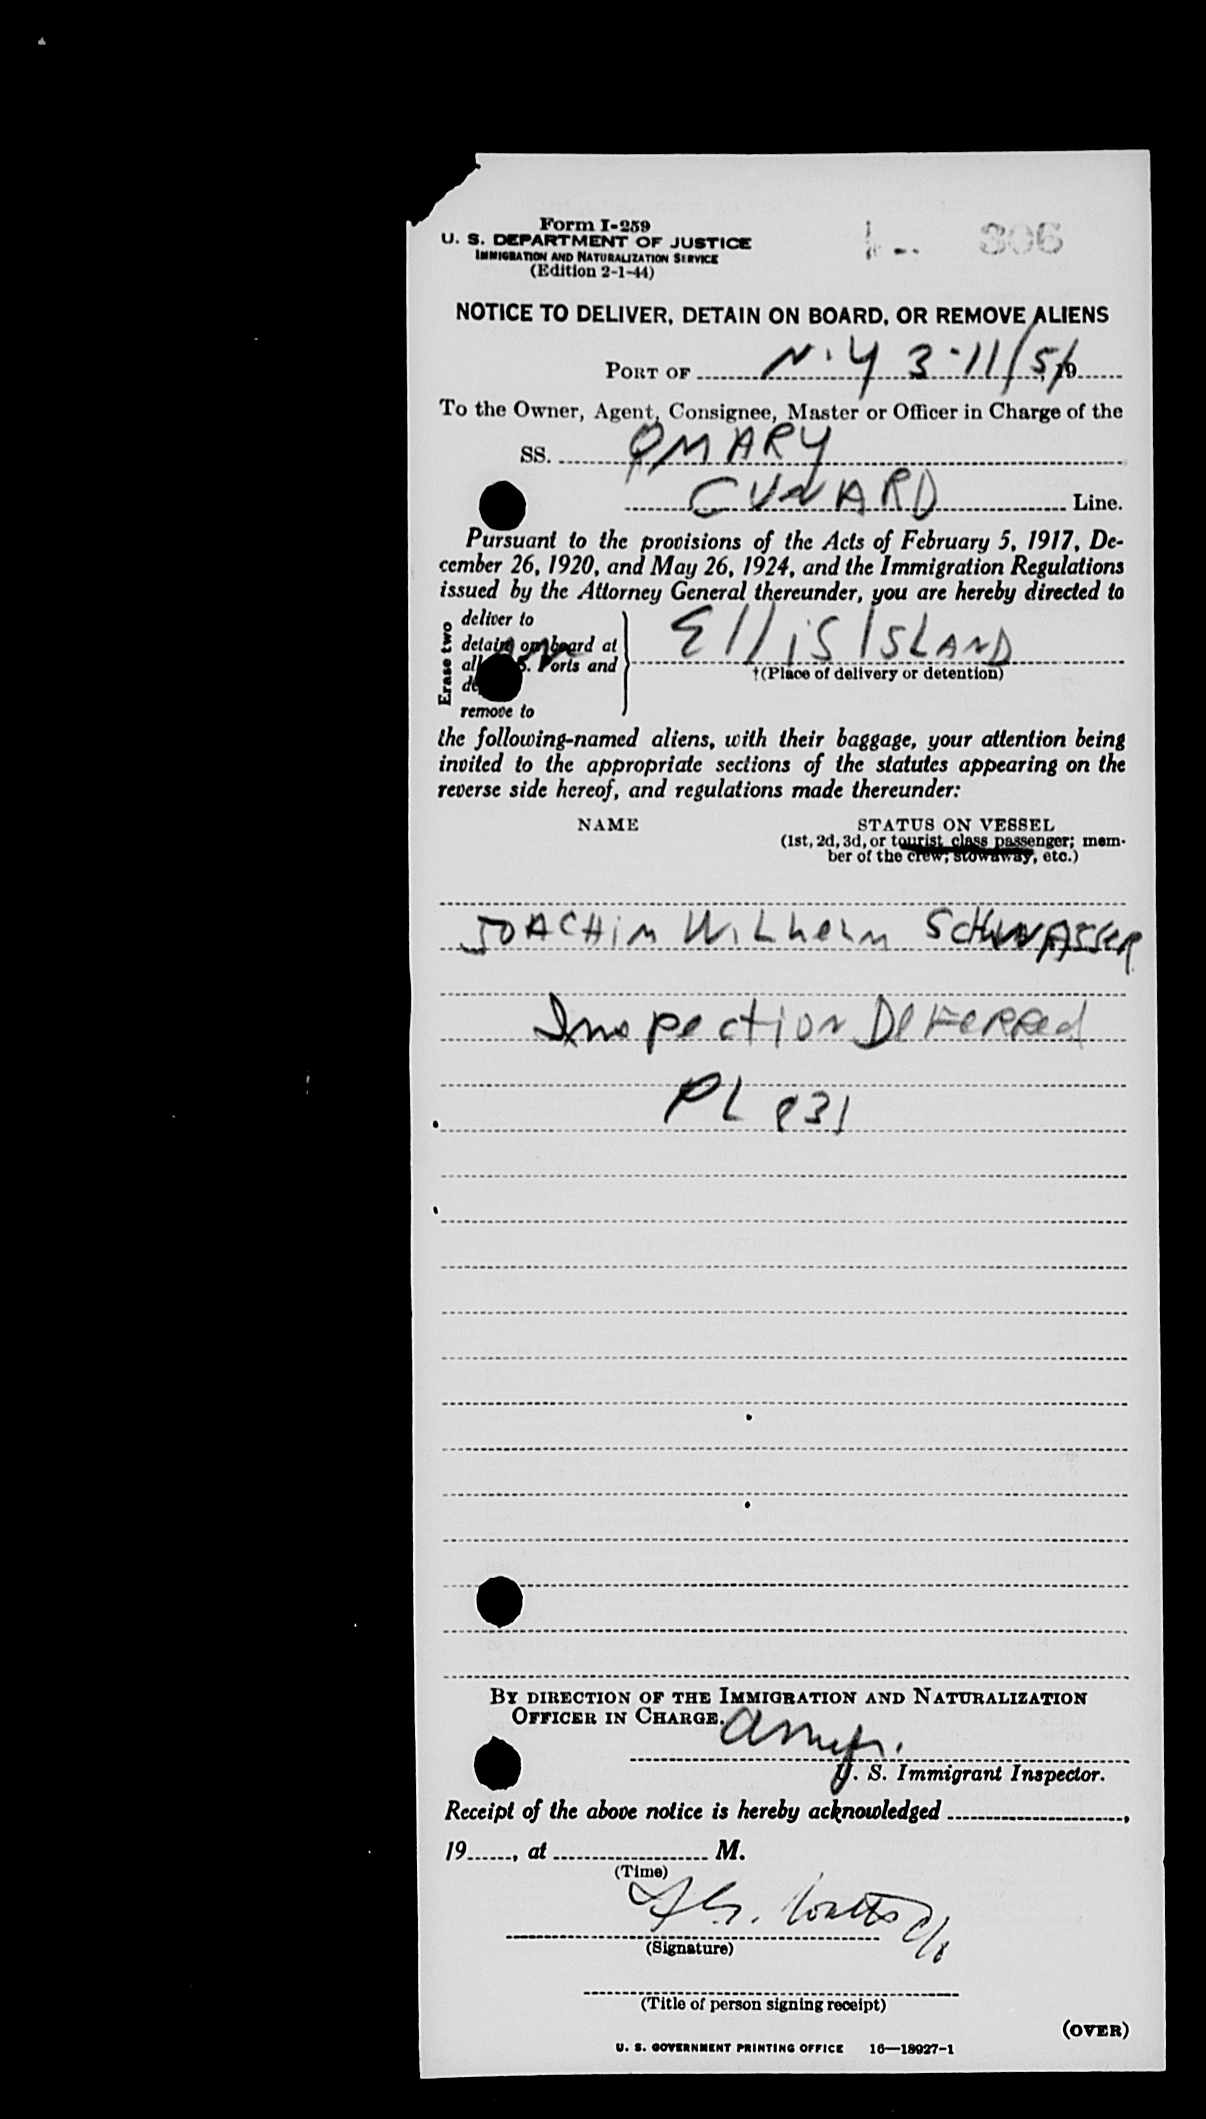 Form I-259
U. S. DEPARTMENT OF JUSTICE
IMMIGRATION AND NATURALIZATION SERVICE
(Edition 2-1-44)
306
NOTICE TO DELIVER, DETAIN ON BOARD, OR REMOVE ALIENS
PORT OF N.Y 3-11/51, 19
To the Owner, Agent, Consignee, Master or Officer in Charge of the
SS. QMARY
CUNARD Line.
Pursuant to the provisions of the Acts of February 5, 1917, De-
cember 26, 1920, and May 26, 1924, and the Immigration Regulations
issued by the Attorney General thereunder, you are hereby directed to
Erase two
deliver to
detain on board at
all S. Ports and
remove to
Ellis ISLAND
†(Place of delivery or detention)
the following-named aliens, with their baggage, your attention being
invited to the appropriate sections of the statutes appearing on the
reverse side hereof, and regulations made thereunder:
NAME STATUS ON VESSEL
(1st, 2d, 3d, or tourist class passenger; mem-
ber of the crew; stowaway, etc.)
JOACHIM WILhelm SCHWASSER
Inspection DeFeRRed
PL 831
BY DIRECTION OF THE IMMIGRATION AND NATURALIZATION
OFFICER IN CHARGE.
U. S. Immigrant Inspector.
Receipt of the above notice is hereby acknowledged ,
19 , at M.
(Time)
Watts
(Signature)
(Title of person signing receipt)
(OVER)
U. S. GOVERNMENT PRINTING OFFICE 16—18927-1